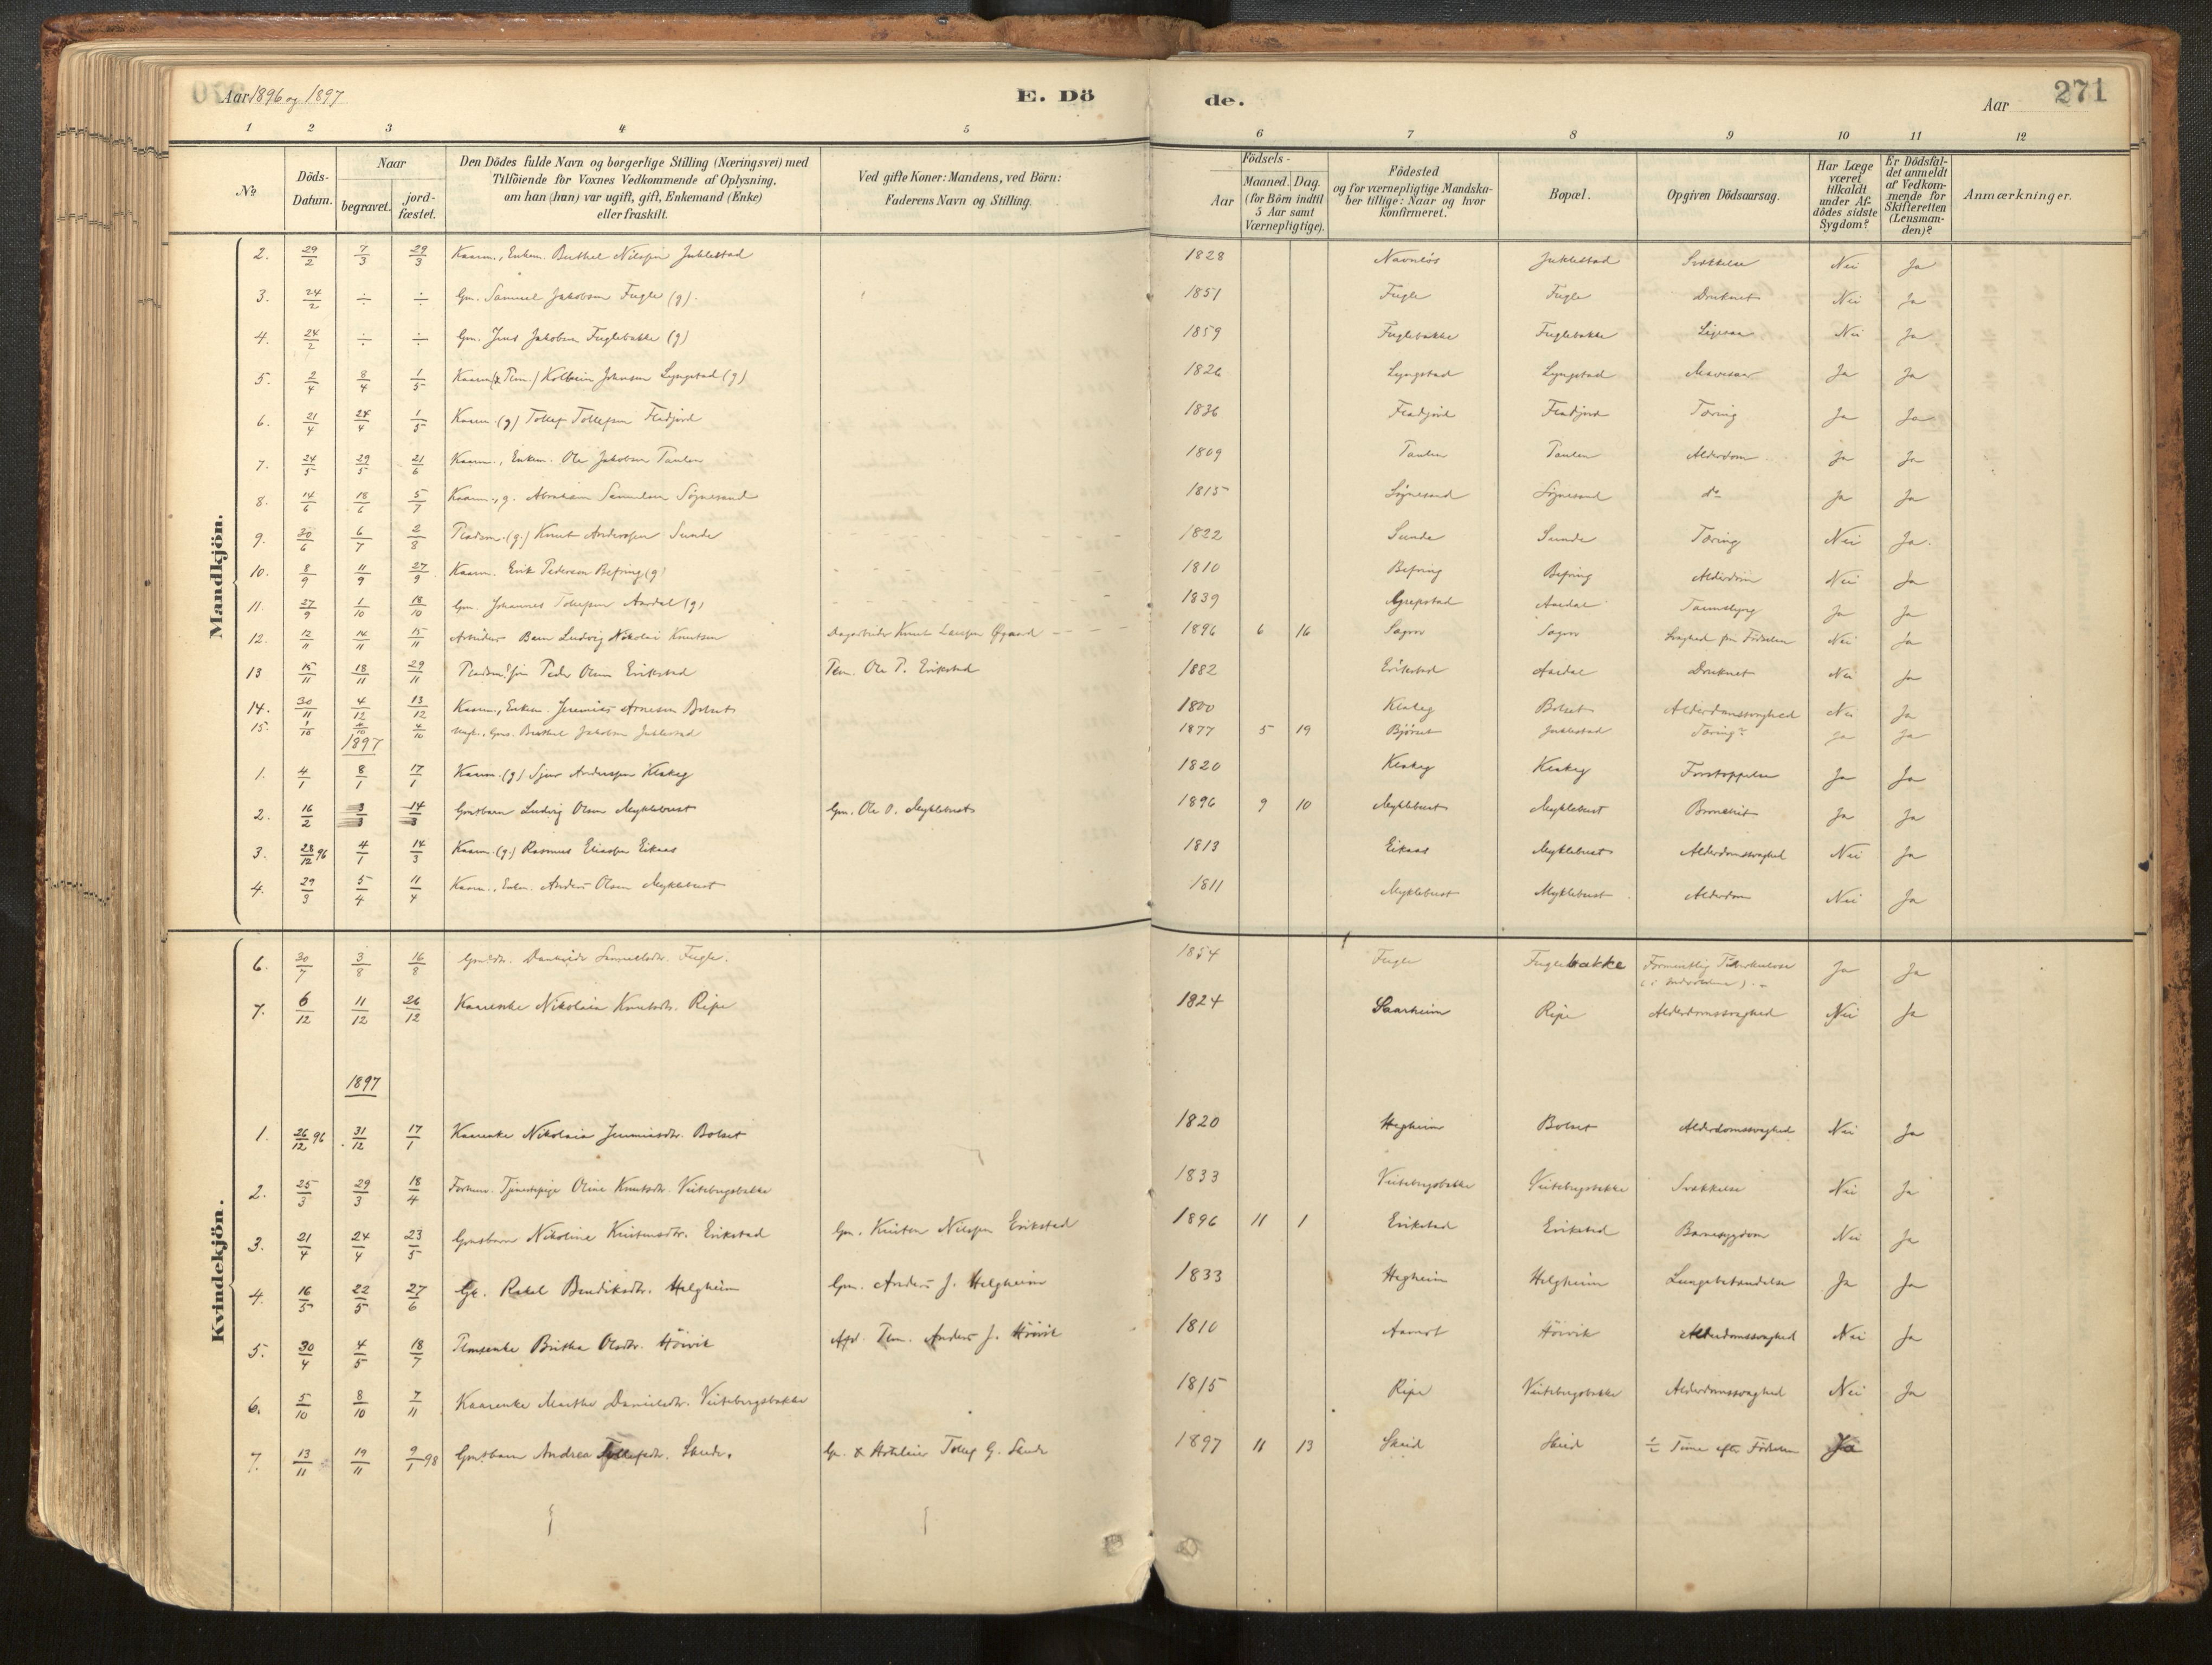 Aar 1896 og 1897
E. Dö
de.
Aar
271
1 2 3 4 5 6 7 8 9 10 11 12
No
Döds-Datum.
Naar
begravet.
jord-fæstet.
Den Dödes fulde Navn og borgerlige Stilling (Næringsvei) med
Tilföiende for Voxnes Vedkommende af Oplysning,
om han (hun) var ugift, gift, Enkemand (Enke)
eller fraskilt.
Ved gifte Koner: Mandens, ved Börn:
Faderens Navn og Stilling.
Födsels-
Aar
Maaned. Dag.
(for Börn indtil
5 Aar samt
Værnepligtige).
Födested
og for værnepligtige Mandska-
ber tillige: Naar og hvor
konfirmeret.
Bopæl.
Opgiven Dödsaarsag.
Har Læge
været
tilkaldt
under Af-
dödes sidste
Sygdom?
Er Dödsfal-
det anmeldt
af Vedkom-
mende for
Skifteretten
(Lensman-
den)?
Anmærkninger.
Mandkjön.
2. 29/2 7/3 29/3 Kaarm., Enkem. Berthel Nilssen Juklestad 1828 Navnløs Juklestad Svækkelse Nei Ja
3. 24/2 ÷ ÷ Gm. Samuel Jakobsen Fugle (g). 1851 Fugle Fugle Druknet Nei Ja
4. 24/2 ÷ ÷ Gm. Jens Jakobsen Fuglebakke (g) 1859 Fuglebakke Fuglebakke Ligesaa Nei Ja
5. 2/4 8/4 1/5 Kolbein Johnsen Lyngstad (g) 1826 Lyngstad Lyngstad Mavesaar Ja Ja
6. 21/4 24/4 1/5 Kaarm. (g) Tollef Tollefsen Fladjord 1836 Fladjord Fladjord Tæring Ja Ja
7. 24/5 29/5 21/6 Kaarm., Enkem. Ole Jakobsen Paulen 1809 Paulen Paulen Alderdom Ja Ja
8. 14/6 18/6 5/7 Kaarm., g. Abraham Samuelsen Søgnesand 1815 Søgnesand Søgnesand do Ja Ja
9. 30/6 6/7 2/8 Pladsm. (g.) Knut Anderssen Sunde 1822 Sunde Sunde Tæring Nei Ja.
10. 8/9 11/9 27/9 Kaarm. Erik Pedersen Befring (g) 1810 Befring Befring Alderdom Nei Ja
11. 27/9 1/10 18/10 Gm. Johannes Tollefsen Aardal (g) 1839 Agrepstad Aardal Ja Ja
12. 12/11 14/11 15/11 Arbeiders Barn Ludvig Nikolai Knutsen Dagarbeider Knut Larssen Øgaard 1896 6 16 Sagvor Sagvor Svaghed fra Fødselen Nei Ja
13 15/11 18/11 29/11 Pladsm. Søn Peder Olsen Erikstad Plm. Ole P. Erikstad 1882 Erikstad Aardal Druknet Nei Ja
14. 30/11 4/12 13/12 Kaarm., Enkem. Jeremias Arnesen Bolset 1800 Klakeg Bolset Alderdomssvaghed Nei Ja
15. 4/10 Ungk., Gms. Berthel Jakobsen Juklestad 1877 5 19 Bjørset Juklestad Tæring? Ja Ja
1897
1. 4/1 8/1 17/1 Kaarm. (g) Sjur Anderssen Klakeg 1820 Klakeg Klakeg Forstoppelse Ja Ja
2. 16/2 3/3 14/3 Gmsbarn Ludvig Olsen Myklebust Gm. Ole O. Myklebust 1896 9 10 Myklebust Myklebust Bronchit Ja Ja
3. 28/12 96 4/1 14/3 Kaarm. (g.) Rasmus Eliassen Eikaas 1813 Eikaas Myklebust Alderdomssvaghed Nei Ja
4. 29/3 5/4 11/4 Kaarm., Enkm. Anders Olsen Myklebust 1811 Myklebust Myklebust Alderdom Nei Ja
Kvindekjön.
6. 30/7 3/8 16/8 Samuelsdtr. Fugle. 1854 Fugle Fuglebakke Formentlig Tuberkulose Ja Ja
7. 6/12 11/12 26/12 Kaarenke Nikolaia Knutsdtr. Ripe 1824 Skaarheim Ripe Alderdomssvaghed Nei Ja
1897
1. 26/12 96 31/12 17/1 Kaarenke Nikolaia Jeremiasdtr. Bolset 1820 Hegheim Bolset Alderdomssvaghed Nei Ja
2. 25/3 29/3 18/4 Forhenv. Tjenestepige Oline Knutsdtr. Veitebergsbakke 1833 Veitebergsbakke Veitebergsbakke Svækkelse Nei Ja
3. 21/4 24/4 23/5 Gmsbarn Nikoline Kristensdtr. Erikstad Gm. Kristen Nilssen Erikstad 1896 11 1 Erikstad Erikstad Barnesygdom Nei Ja
4. 16/5 22/5 27/6 Gk. Rakel Bendiksdtr. Helgheim Gm. Anders J. Helgheim 1833 Hegheim Helgheim Lungebetændelse Ja Ja
5. 30/4 4/5 18/7 Plmsenke Brithe Olsdtr. Höivik Afd. Plm. Anders J. Höivik 1810 Aamot Höivik Alderdomssvaghed Nei Ja
6. 5/10 8/10 7/11 Kaarenke Marthe Danielsdtr. Veitebergsbakke 1815 Ripe Veitebergsbakke Alderdomssvaghed Nei Ja
7. 13/11 19/11 9/1 98 Gmsbarn Andrea Tollefsdtr. Skrede. Gm. & Tollef G. Skrede 1897 11 13 Skreid Skreid 1/2 Time efter Fødselen Ja